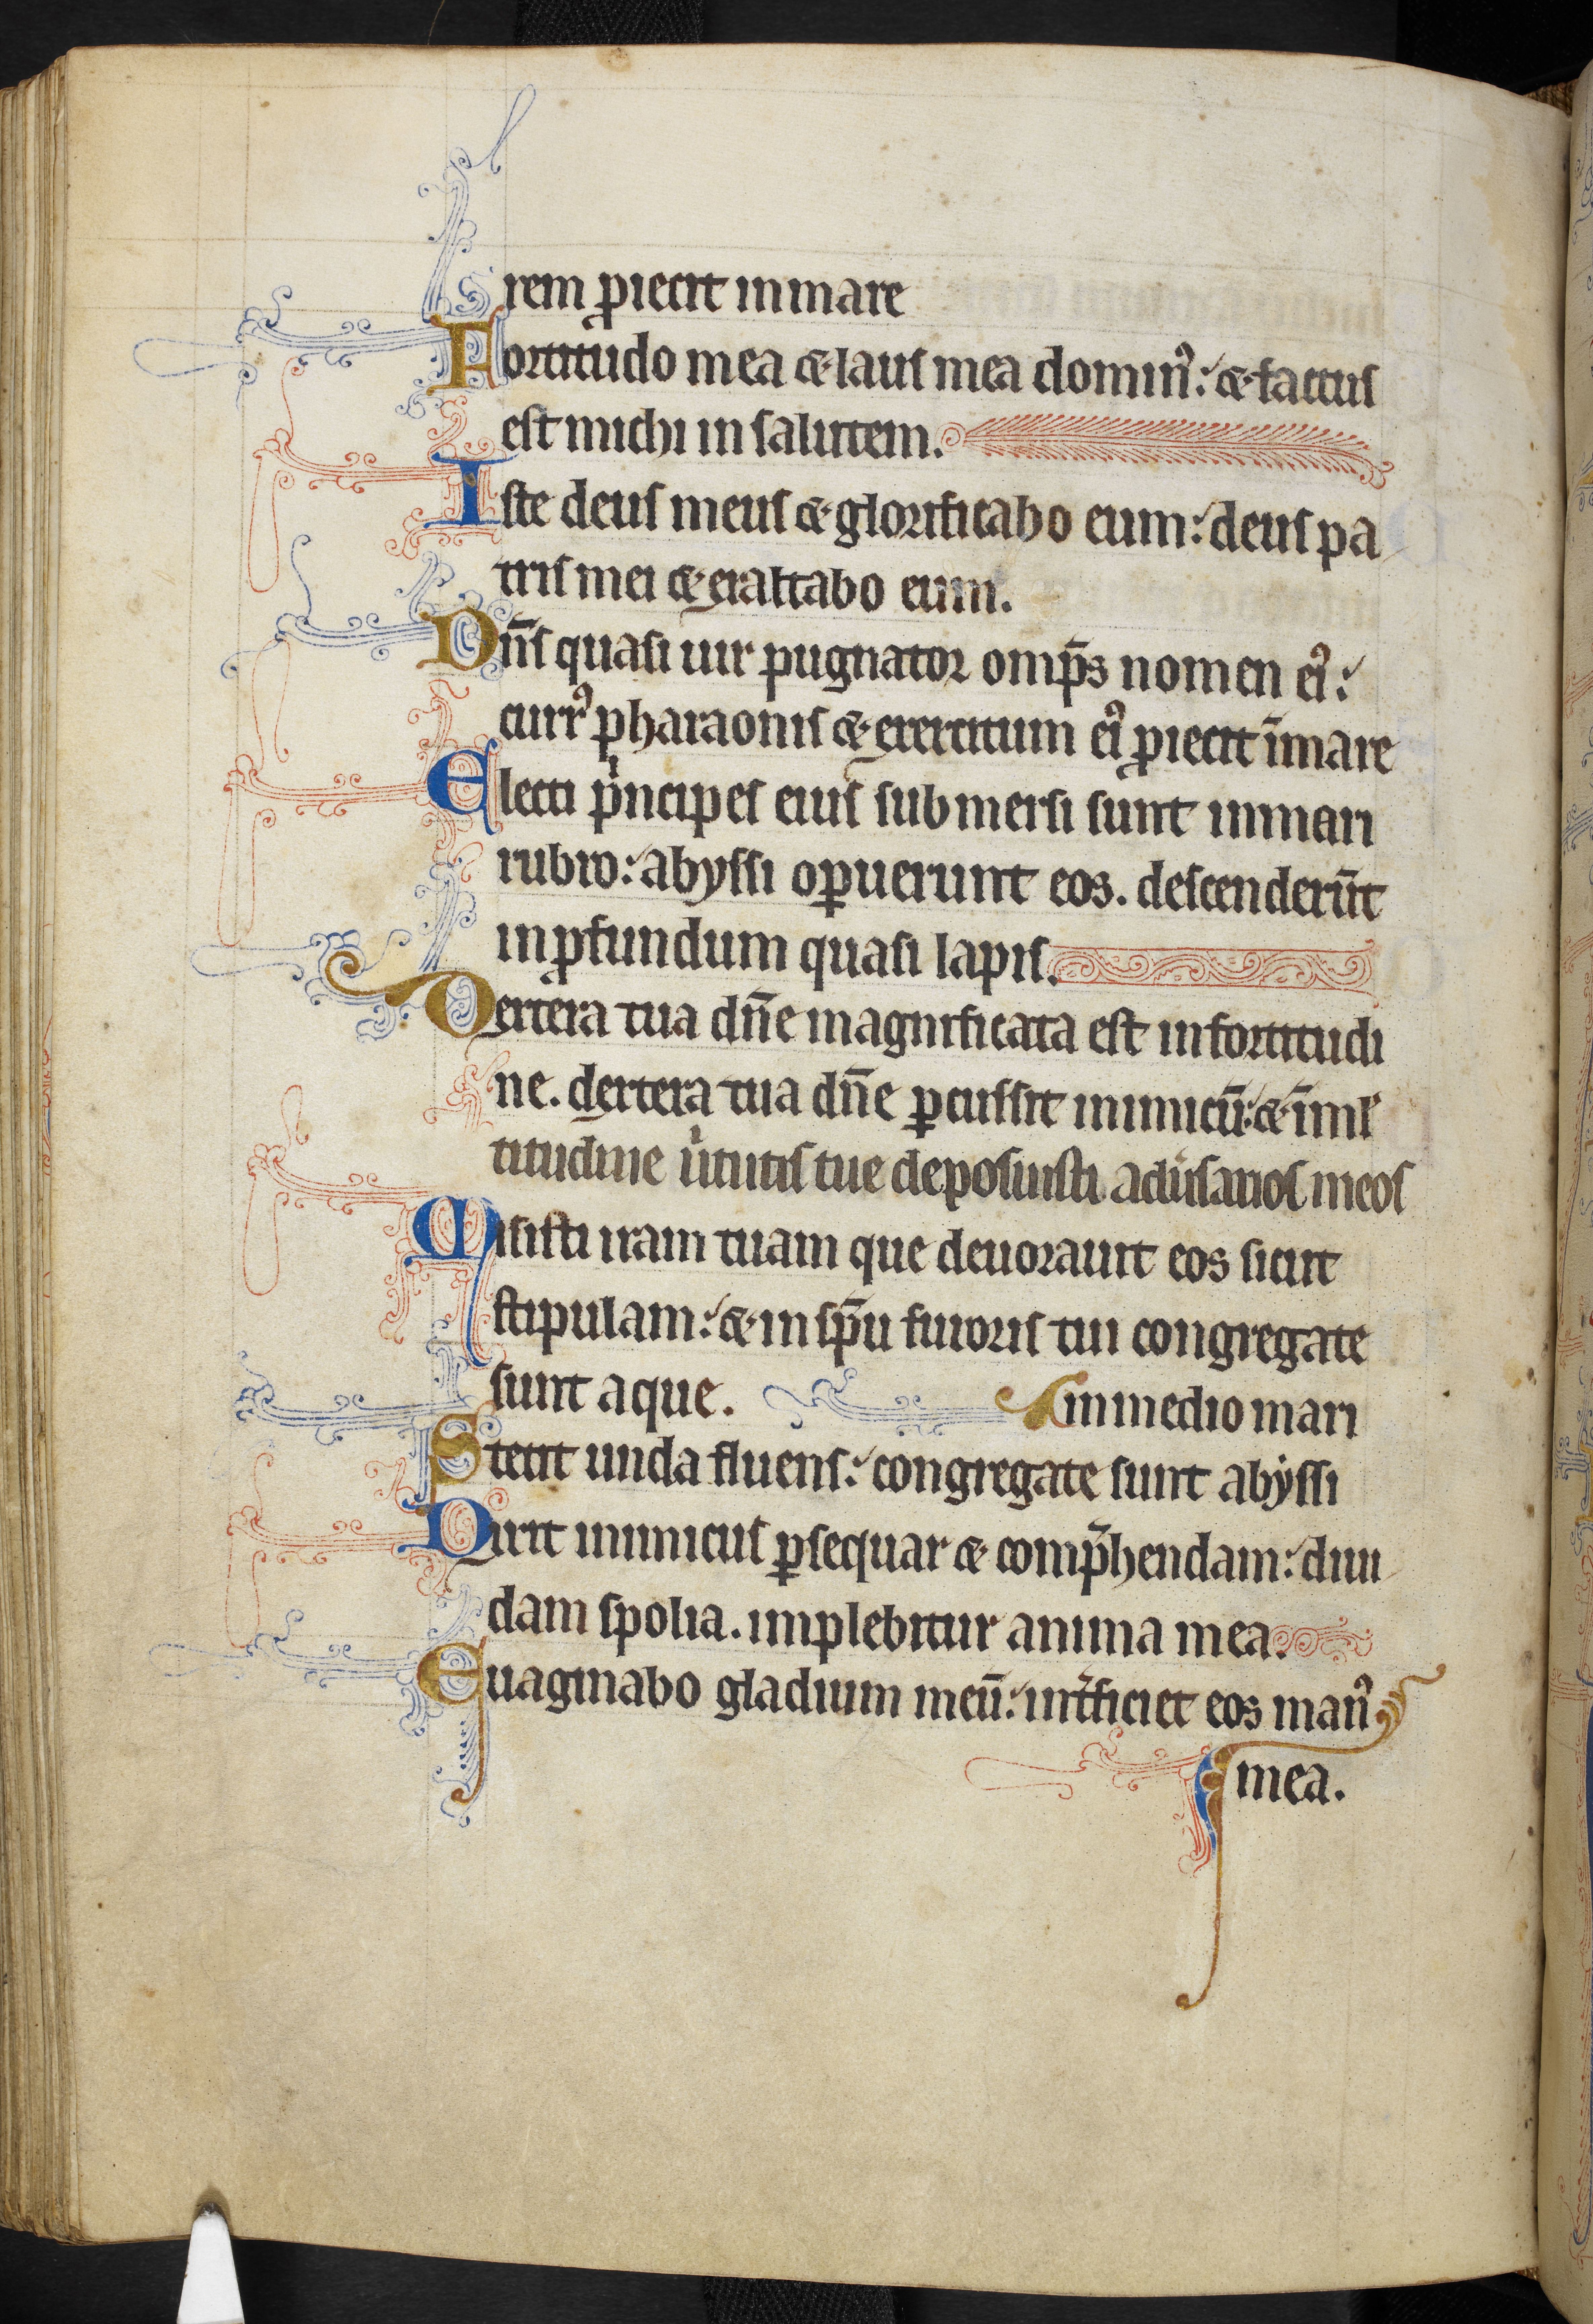 rem ꝓiecit in mare
Fortitudo mea ⁊ laus mea dominꝰ: ⁊ factus
est michi in salutem.
Iste deus meus ⁊ glorificabo eum: deus pa
tris mei ⁊ exaltabo eum.
Dn̄s quasi uir pugnator omp̄s nomen eiꝰ:
currꝰ pharaonis ⁊ exercitum eiꝰ ꝓiecit ī mare
Electi pͥncipes eius submersi sunt in mari
rubro: abyssi oꝑuerunt eos. descenderūt
in ꝓfundum quasi lapis.
Dextera tua dn̄e magnificata est in fortitudi
ne. dextera tua dn̄e ꝑcussit inimicū: ⁊ ī ml̾
titudine u̾tutis tue deposuisti adu̾sarios meos
Misisti iram tuam que deuorauit eos sicut
stipulam: ⁊ in sp̄u furoris tui congregate
sunt aque. in medio mari
Stetit unda fluens: congregate sunt abyssi
Dixit inimicus ꝑsequar ⁊ comp̄hendam: diui
dam spolia. implebitur anima mea.
Euaginabo gladium meū: int̾ficiet eos manꝰ
mea.